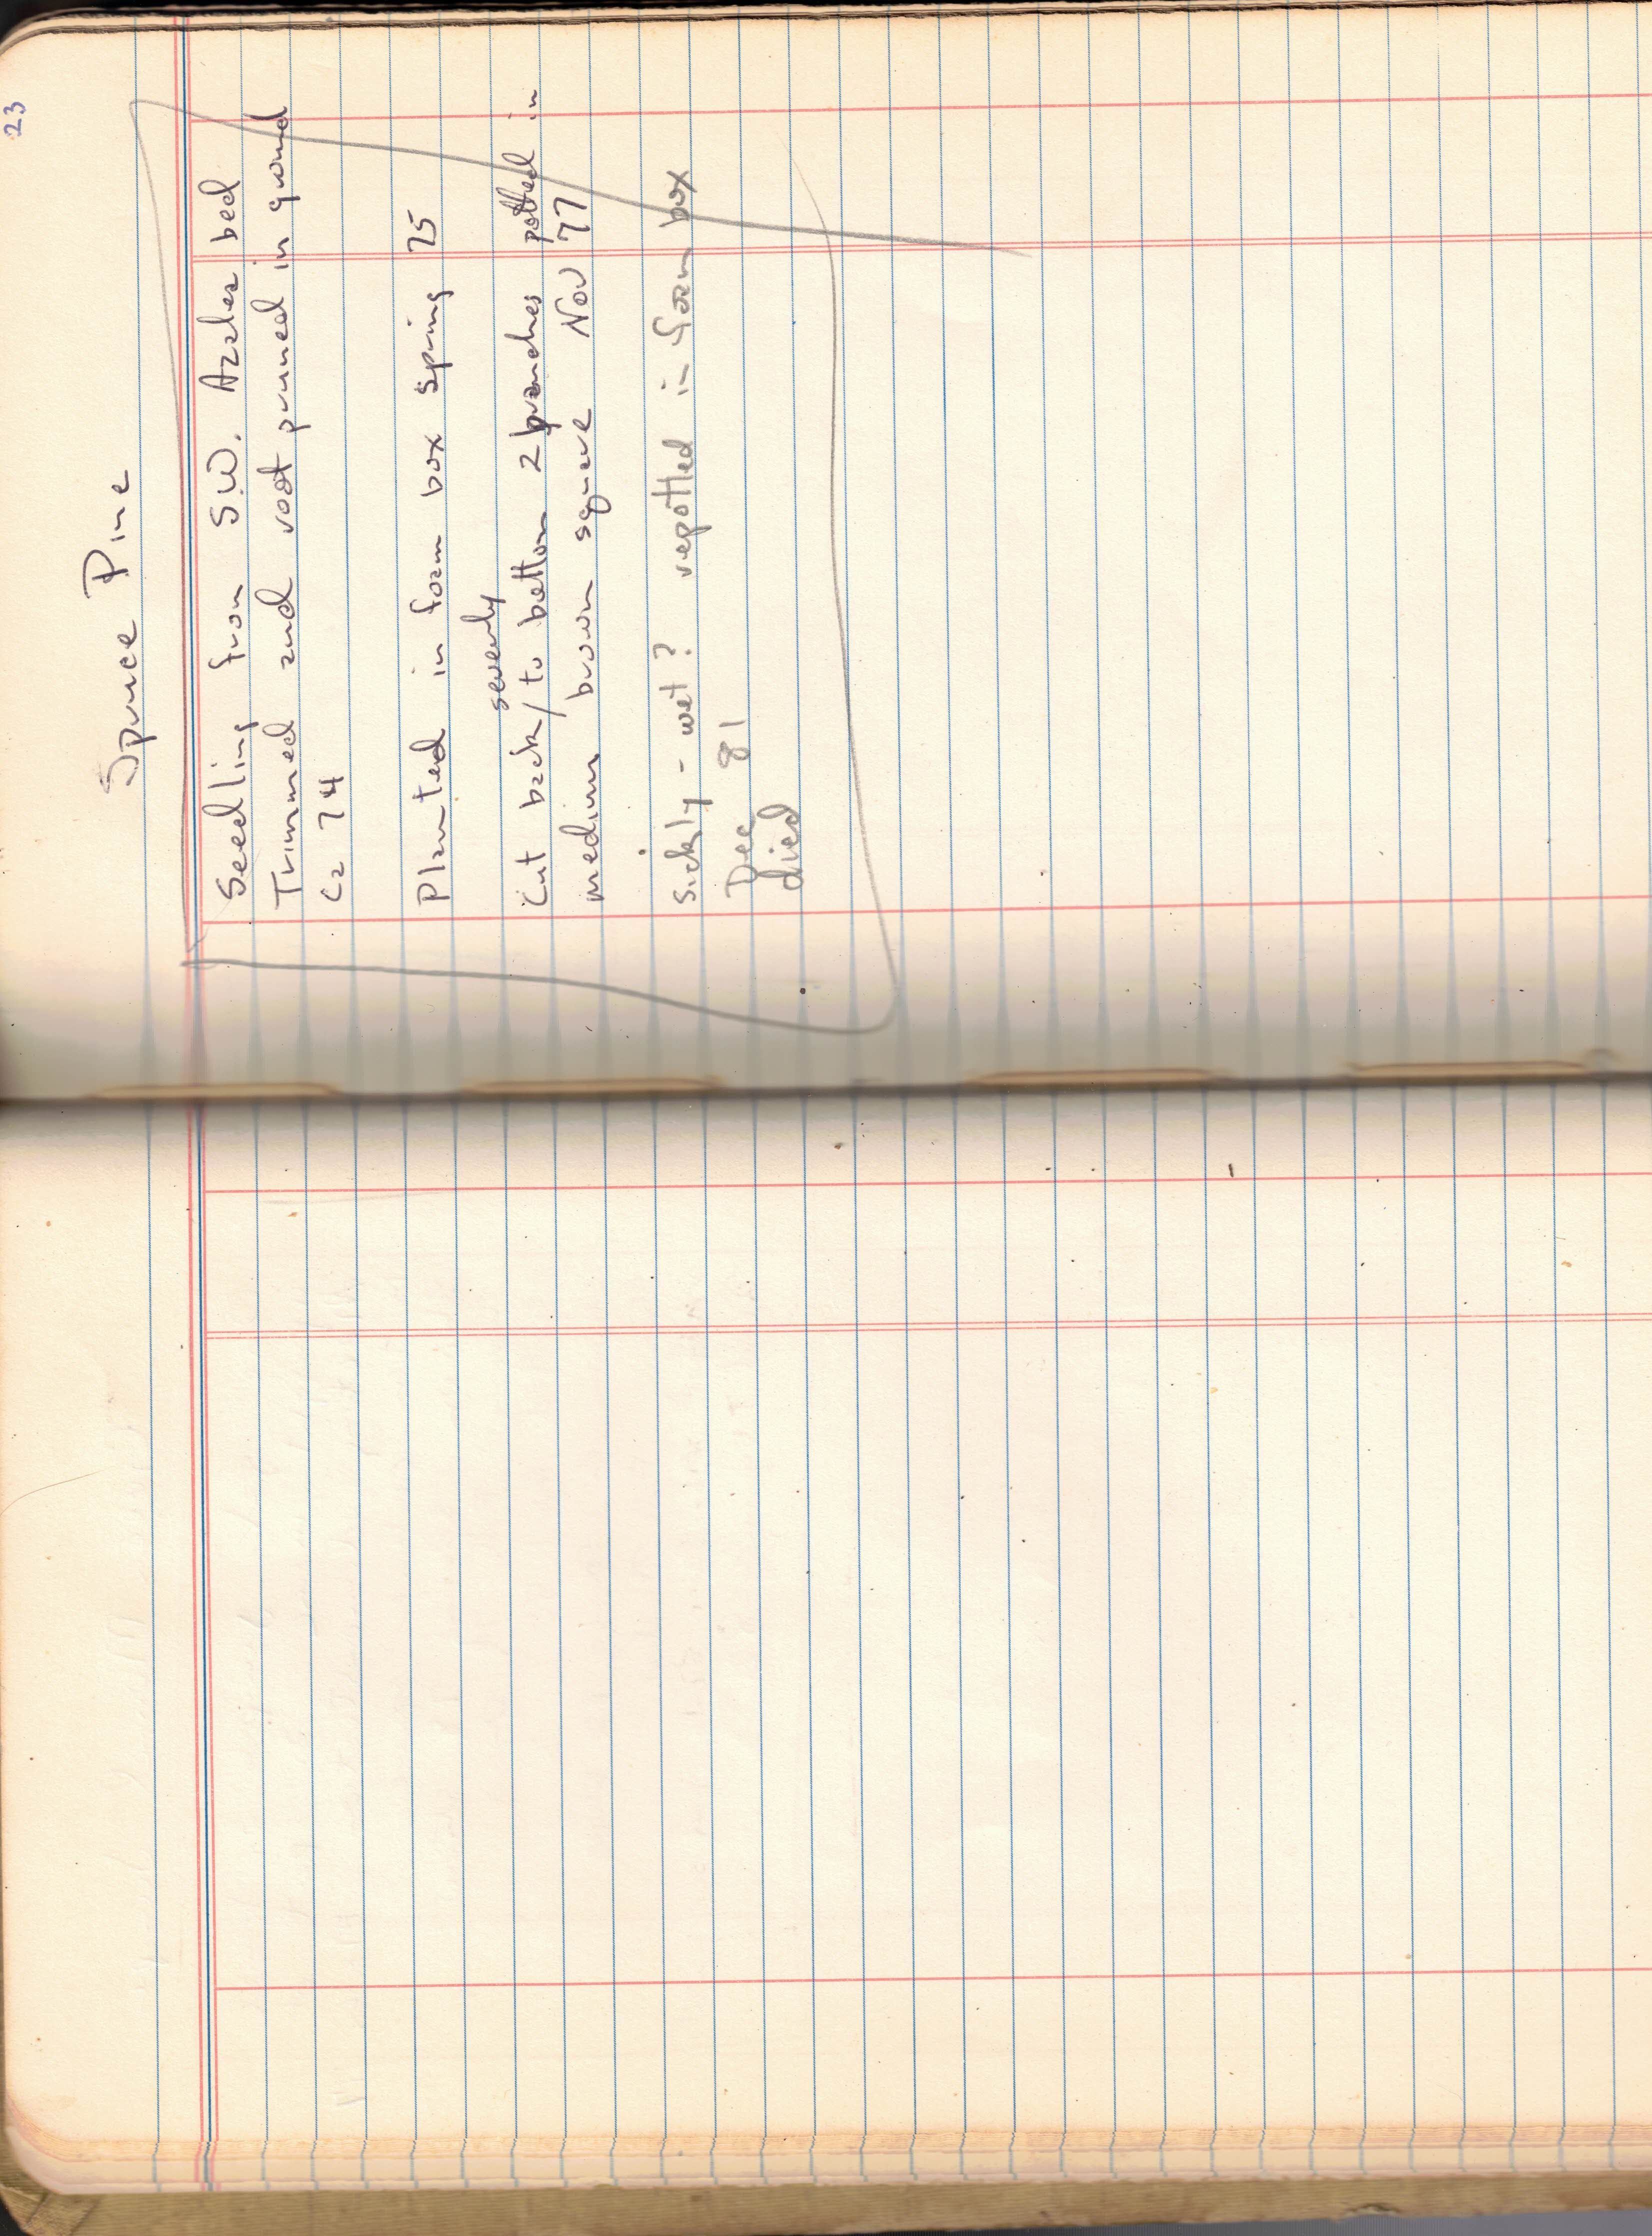 23
Spruce Pine
Seedling from S.W. Azalea bed
Trimmed and root pruned in ground
Ca 74
Planted in foam box spring 75
severly
Cut back / to bottom 2 branches potted in
medium brown square Nov 77
sickly - wet? repotted in foam box
Dec 81
died